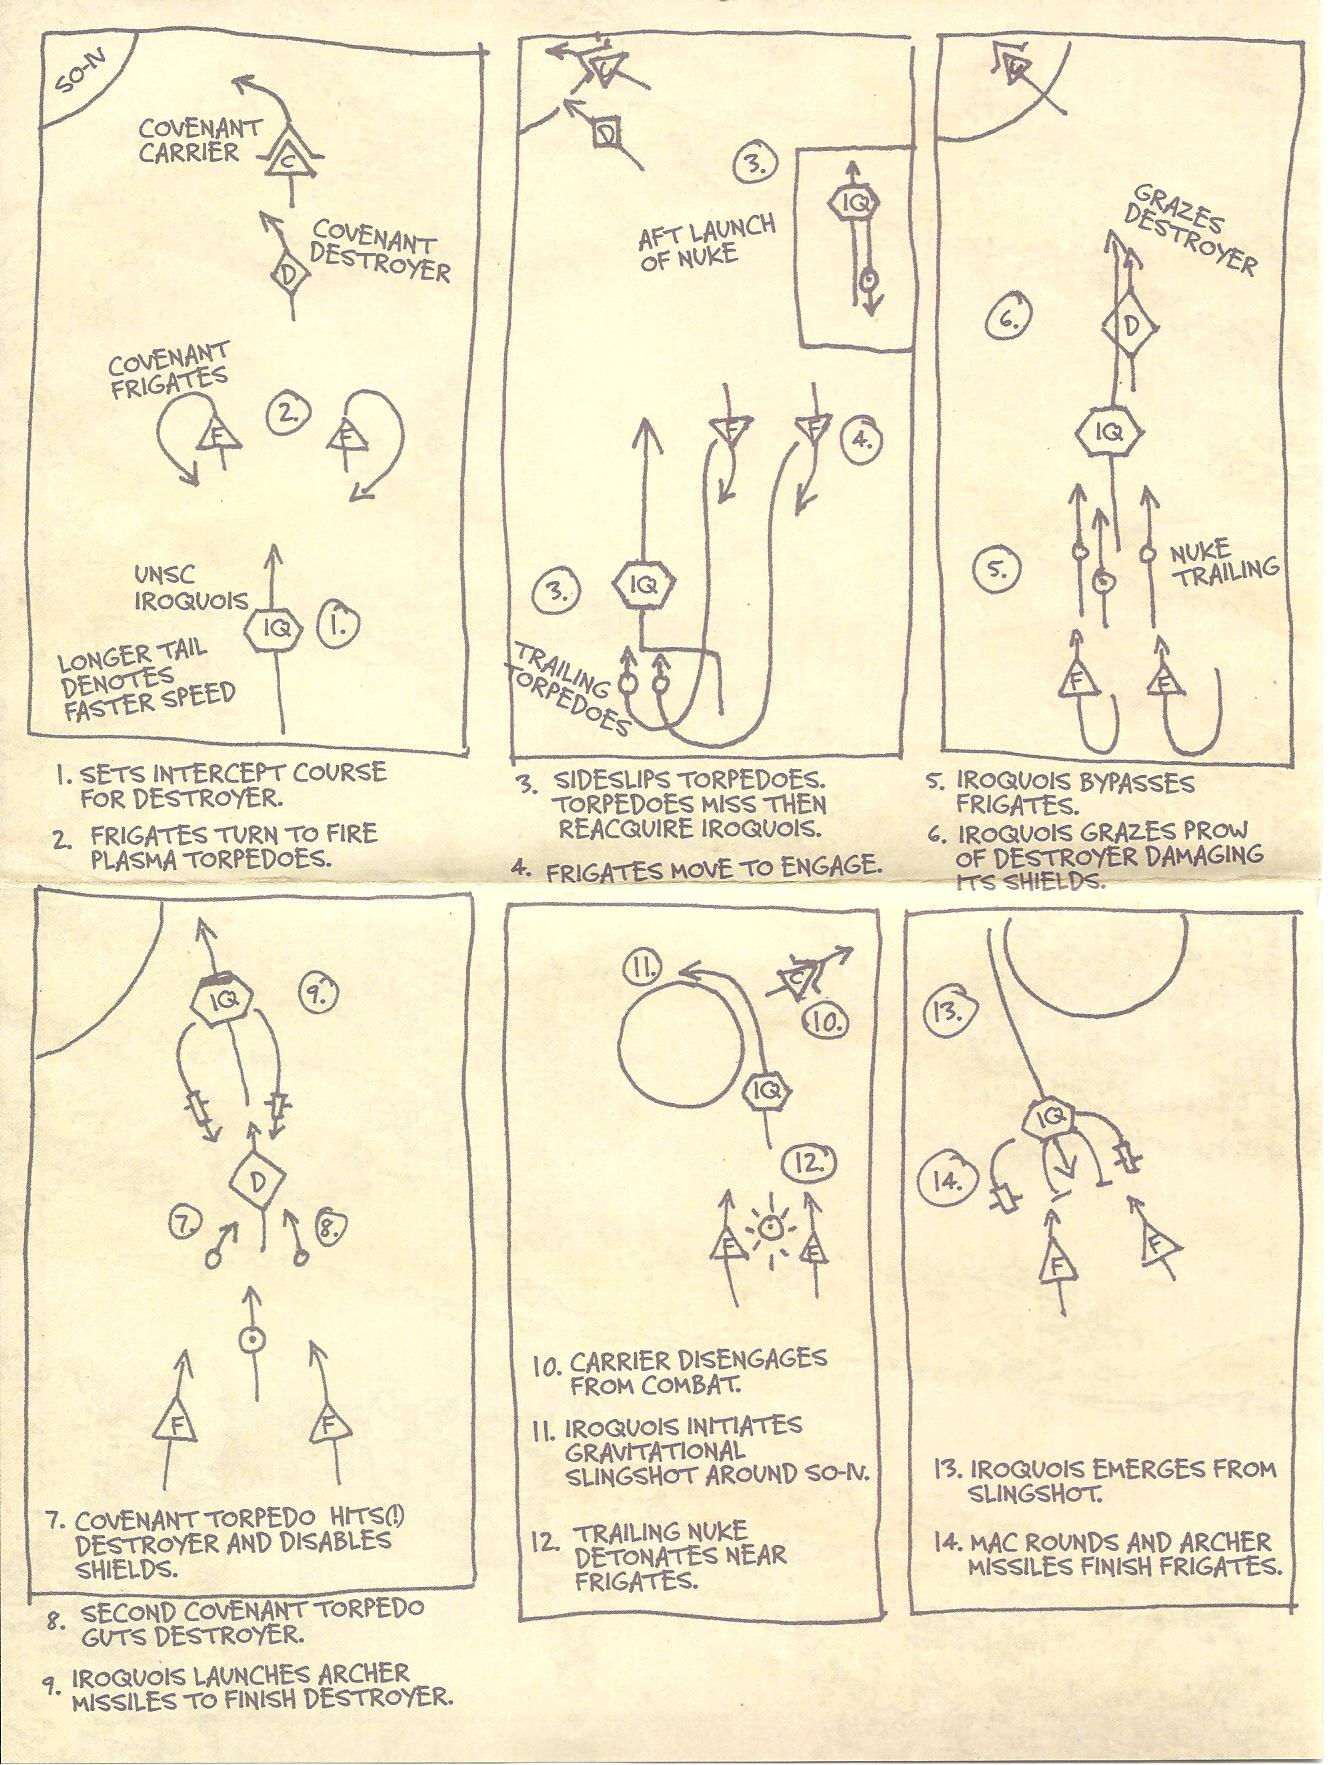 SO-IV
COVENANT
CARRIER
C
COVENANT
DESTROYER
D
COVENANT
FRIGATES
2.
F
F
UNSC
IROQUOIS
IQ
1.
LONGER TAIL
DENOTES
FASTER SPEED
1. SETS INTERCEPT COURSE
FOR DESTROYER.
2. FRIGATES TURN TO FIRE
PLASMA TORPEDOES.
C
D
3.
AFT LAUNCH
OF NUKE
IQ
F
F
4.
3.
IQ
TRAILING
TORPEDOES
3. SIDESLIPS TORPEDOES.
TORPEDOES MISS THEN
REACQUIRE IROQUOIS.
4. FRIGATES MOVE TO ENGAGE.
C
GRAZES
DESTROYER
6.
D
IQ
5.
NUKE
TRAILING
F
F
5. IROQUOIS BYPASSES
FRIGATES.
6. IROQUOIS GRAZES PROW
OF DESTROYER DAMAGING
ITS SHIELDS.
IQ
9.
D
7.
8.
F
F
7. COVENANT TORPEDO HITS(!)
DESTROYER AND DISABLES
SHIELDS.
8. SECOND COVENANT TORPEDO
GUTS DESTROYER.
9. IROQUOIS LAUNCHES ARCHER
MISSILES TO FINISH DESTROYER.
11.
C
10.
IQ
12.
F
F
10. CARRIER DISENGAGES
FROM COMBAT.
11. IROQUOIS INITIATES
GRAVITATIONAL
SLINGSHOT AROUND SO-IV.
12. TRAILING NUKE
DETONATES NEAR
FRIGATES.
13.
IQ
14.
F
F
13. IROQUOIS EMERGES FROM
SLINGSHOT.
14. MAC ROUNDS AND ARCHER
MISSILES FINISH FRIGATES.